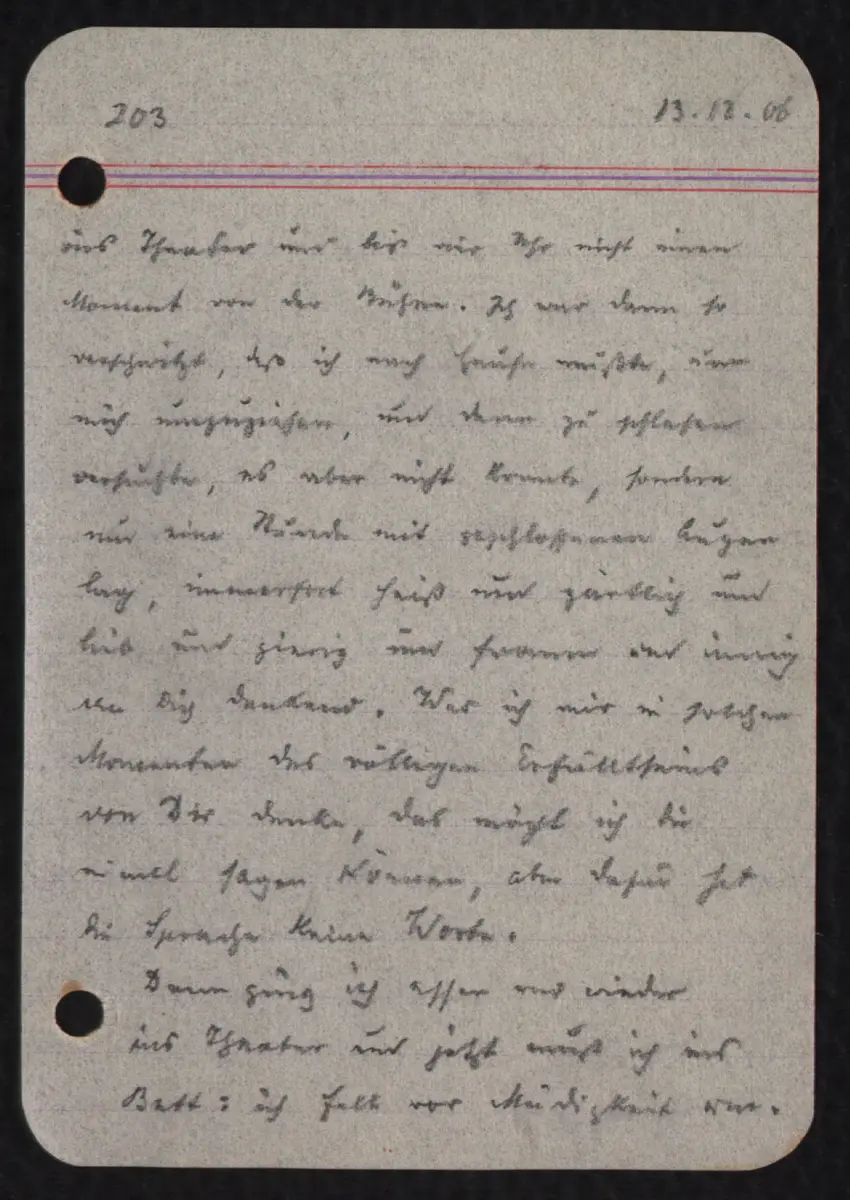 203 13.12.06
ins Theater und bis vier Uhr nicht einen
Moment von der Bühne. Ich war dann so
verschwitzt, daß ich nach Hause mußte, um
mich umzuziehen, und dann zu schlafen
versuchte, es aber nicht konnte, sondern
nur eine Stunde mit geschlossenen Augen
lag, immerfort heiß und zärtlich und
lieb und gierig und fromm und innig
an Dich denkend. Was ich mir in solchen
Momenten des völligen Erfülltseins
von Dir denke, das möcht ich Dir
einmal sagen können, aber dafür hat
die Sprache keine Worte.
Dann ging ich essen und wieder
ins Theater und jetzt muß ich ins
Bett: ich falle vor Müdigkeit um.